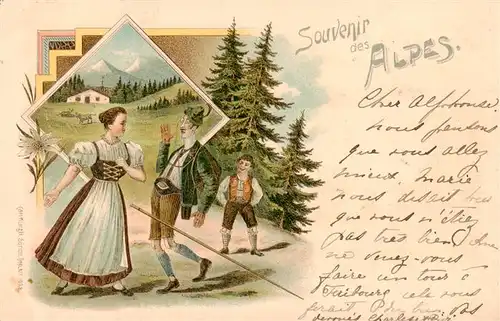 Souvenir
des
ALPES.
Cher Alphonse.
nous pensons
que vous allez
mieux. Marie
nous disait
que vous n'étiez
pas très bien
ne venez-vous
faire un tour à
Fribourg cela vous
ferait